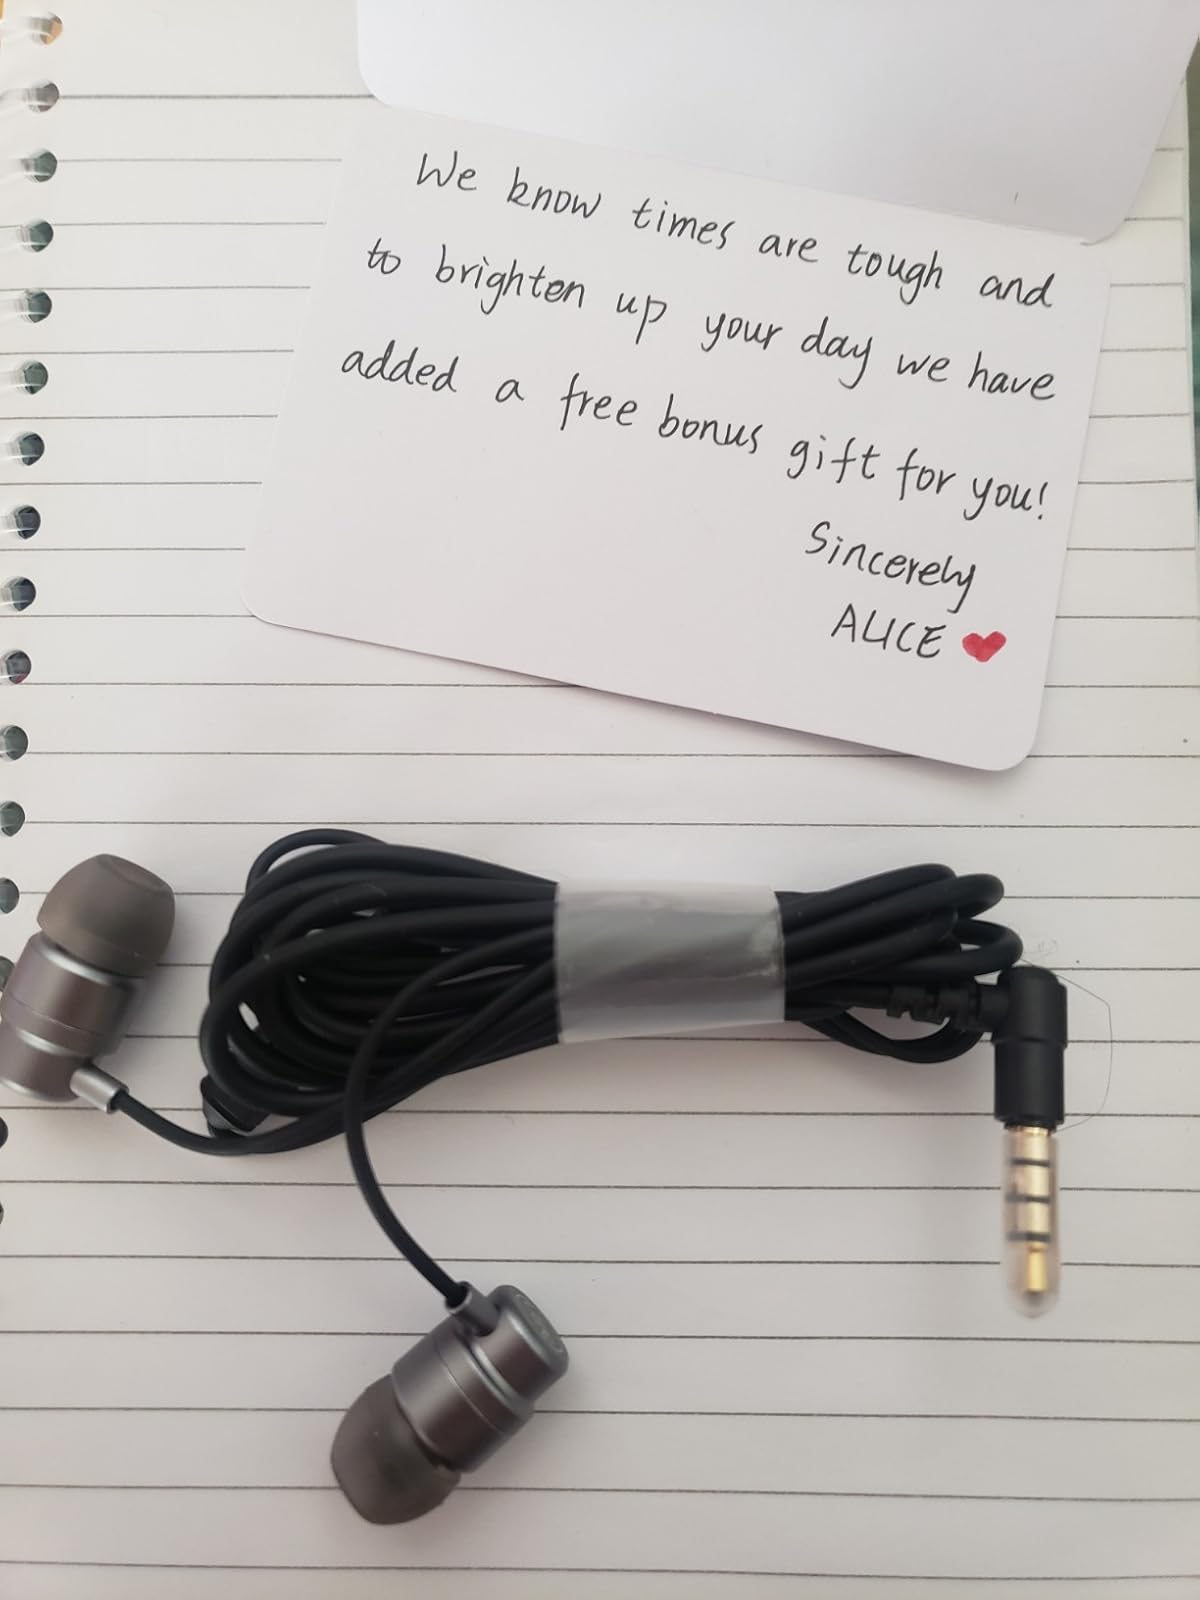 We know times are tough and
to brighten up your day we have
added a free bonus gift for you!
Sincerely
ALICE ❤